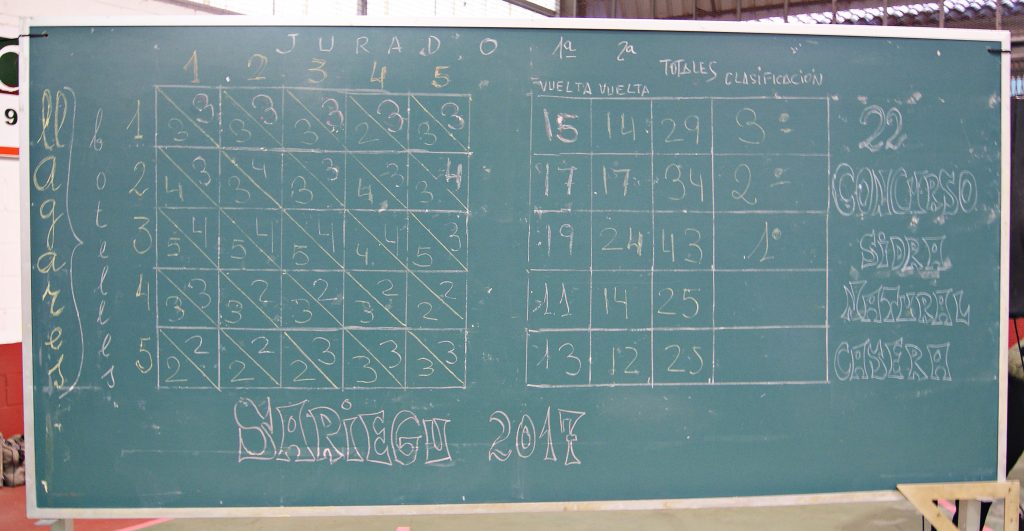 JURADO 1ª 2ª
1 2 3 4 5 TOTALES CLASIFICACIÓN
VUELTA VUELTA
llagares
botelles
1 3 3 3 3 3 15 14 29 3º 22
3 3 3 2 3
2 3 4 3 3 4 17 17 34 2º CONCURSO
4 3 3 4 3
3 4 4 4 4 3 19 24 43 1º SIDRA
5 5 5 4 5
4 3 2 2 2 2 11 14 25 NATURAL
3 3 3 3 2
5 2 2 3 3 3 13 12 25 CASERA
2 2 2 3 3
SARIEGU 2017
9